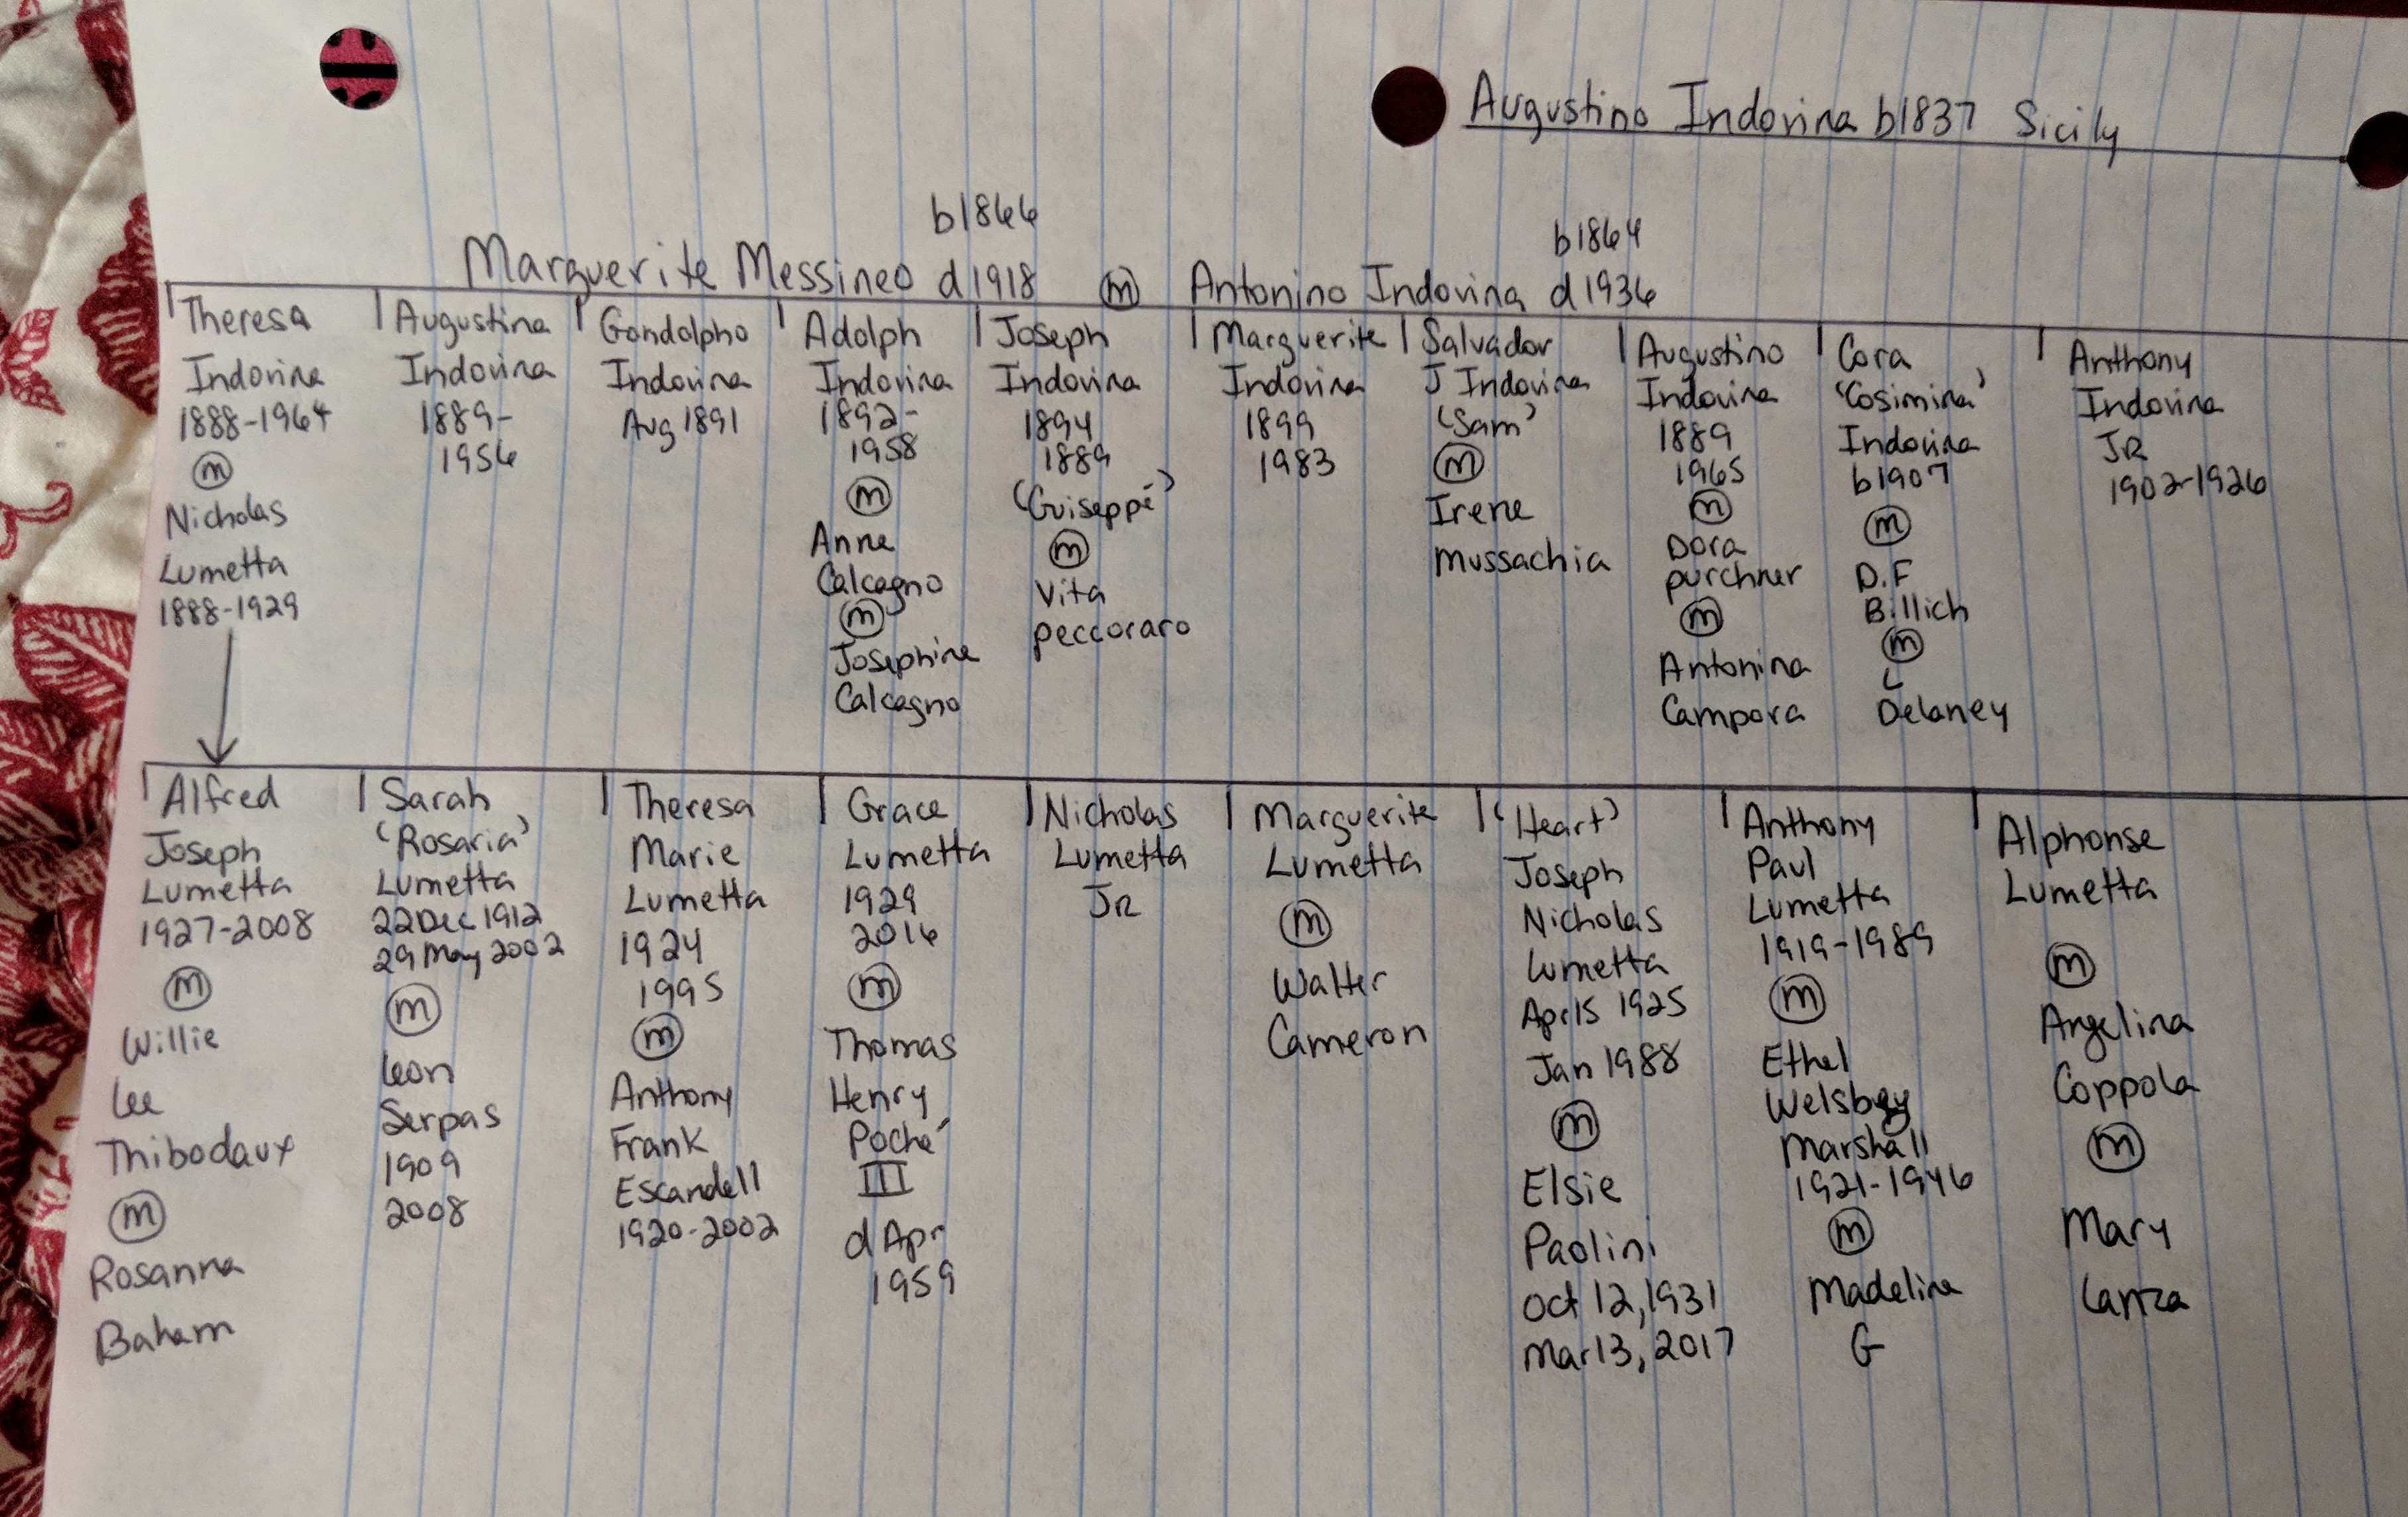 Augustino Indovina b1837 Sicily
b1866
b1864
Marguerite Messineo d1918 m Antonino Indovina d1936
Theresa
Indovina
1888-1964
m
Nicholas
Lumetta
1888-1929
Augustina
Indovina
1889-
1956
Gondolpho
Indovina
Aug 1891
Adolph
Indovina
1892-
1958
m
Anne
Calcagno
m
Josephine
Calcagno
Joseph
Indovina
1894
1889
(Guiseppé)
m
Vita
peccoraro
Marguerite
Indovina
1899
1983
Salvador
J Indovina
(Sam)
m
Irene
Mussachia
Augustino
Indovina
1889
1965
m
Dora
purchner
m
Antonina
Campora
Cora
'Cosimina'
Indovina
b1907
m
D.F
Billich
m
L
Delaney
Anthony
Indovina
JR
1902-1926
Alfred
Joseph
Lumetta
1927-2008
m
Willie
Lee
Thibodaux
m
Rosanna
Baham
Sarah
(Rosaria)
Lumetta
22Dec 1912
29May 2002
m
Leon
Serpas
1909
2008
Theresa
Marie
Lumetta
1924
1995
m
Anthony
Frank
Escandell
1920-2002
Grace
Lumetta
1929
2016
m
Thomas
Henry
Poché
III
d Apr
1959
Nicholas
Lumetta
JR
Marguerite
Lumetta
m
Walter
Cameron
(Heart)
Joseph
Nicholas
Lumetta
Apr15 1925
Jan 1988
m
Elsie
Paolini
Oct 12, 1931
Mar13, 2017
Anthony
Paul
Lumetta
1919-1989
m
Ethel
Marshall
1921-1946
m
Madeline
G
Alphonse
Lumetta
m
Angelina
Coppola
m
Mary
Lanza